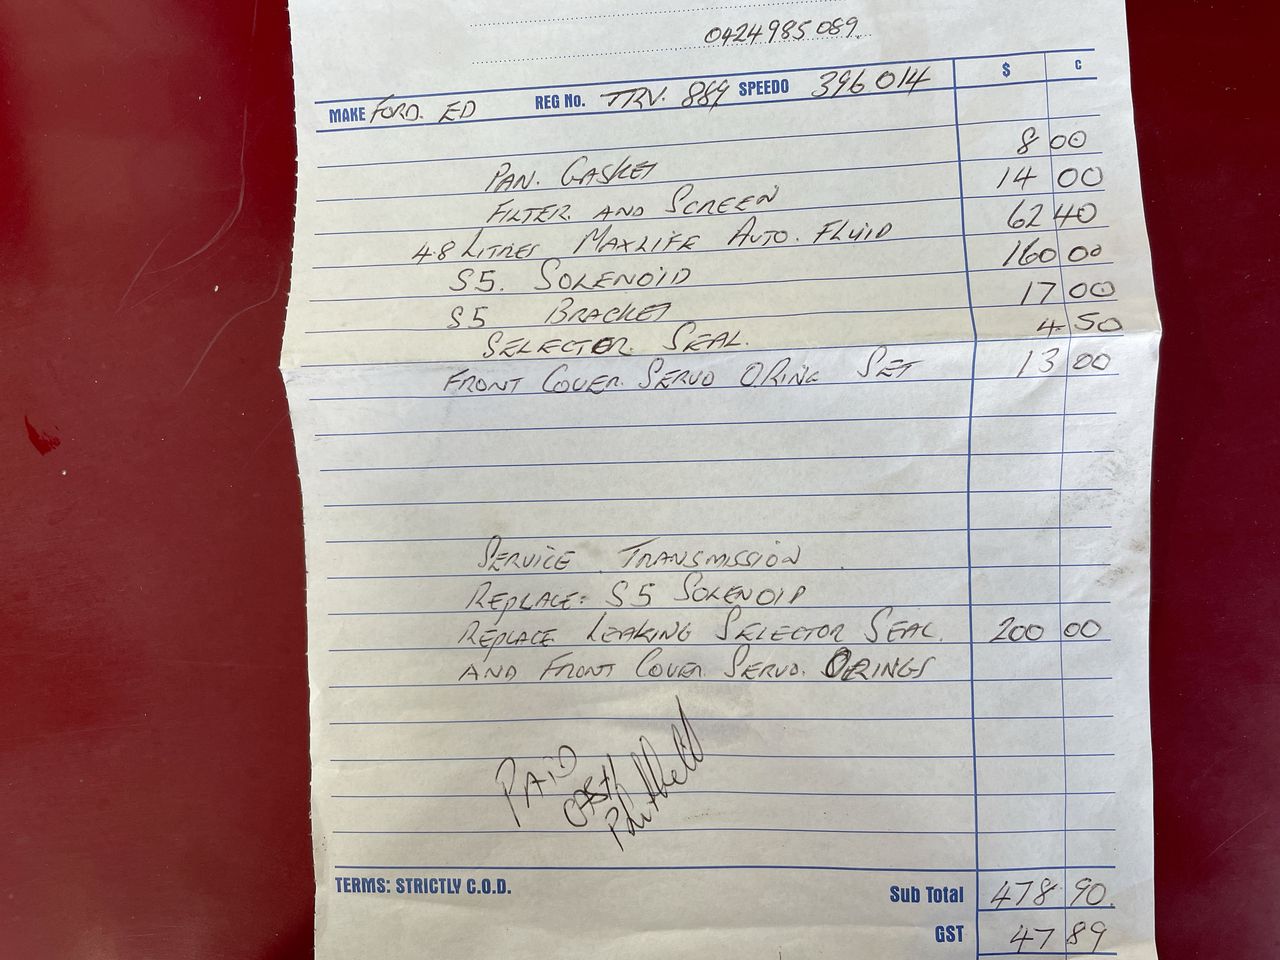 0424985089
$ c
MAKE FORD. ED REG No. TRV. 889 SPEEDO 396014
PAN. GASKET 8 00
FILTER AND SCREEN 14 00
4.8 LITRES MAXLIFE AUTO. FLUID 62 40
S5. SOLENOID 160 00
S5 BRACKET 17 00
SELECTOR SEAL. 4 50
FRONT COVER SERVO ORING SET 13 00
SERVICE TRANSMISSION
REPLACE: S5 SOLENOID
REPLACE LEAKING SELECTOR SEAL. 200 00
AND FRONT COVER SERVO. ORINGS
PAID
CASH
TERMS: STRICTLY C.O.D.
Sub Total 478 90.
GST 47 89